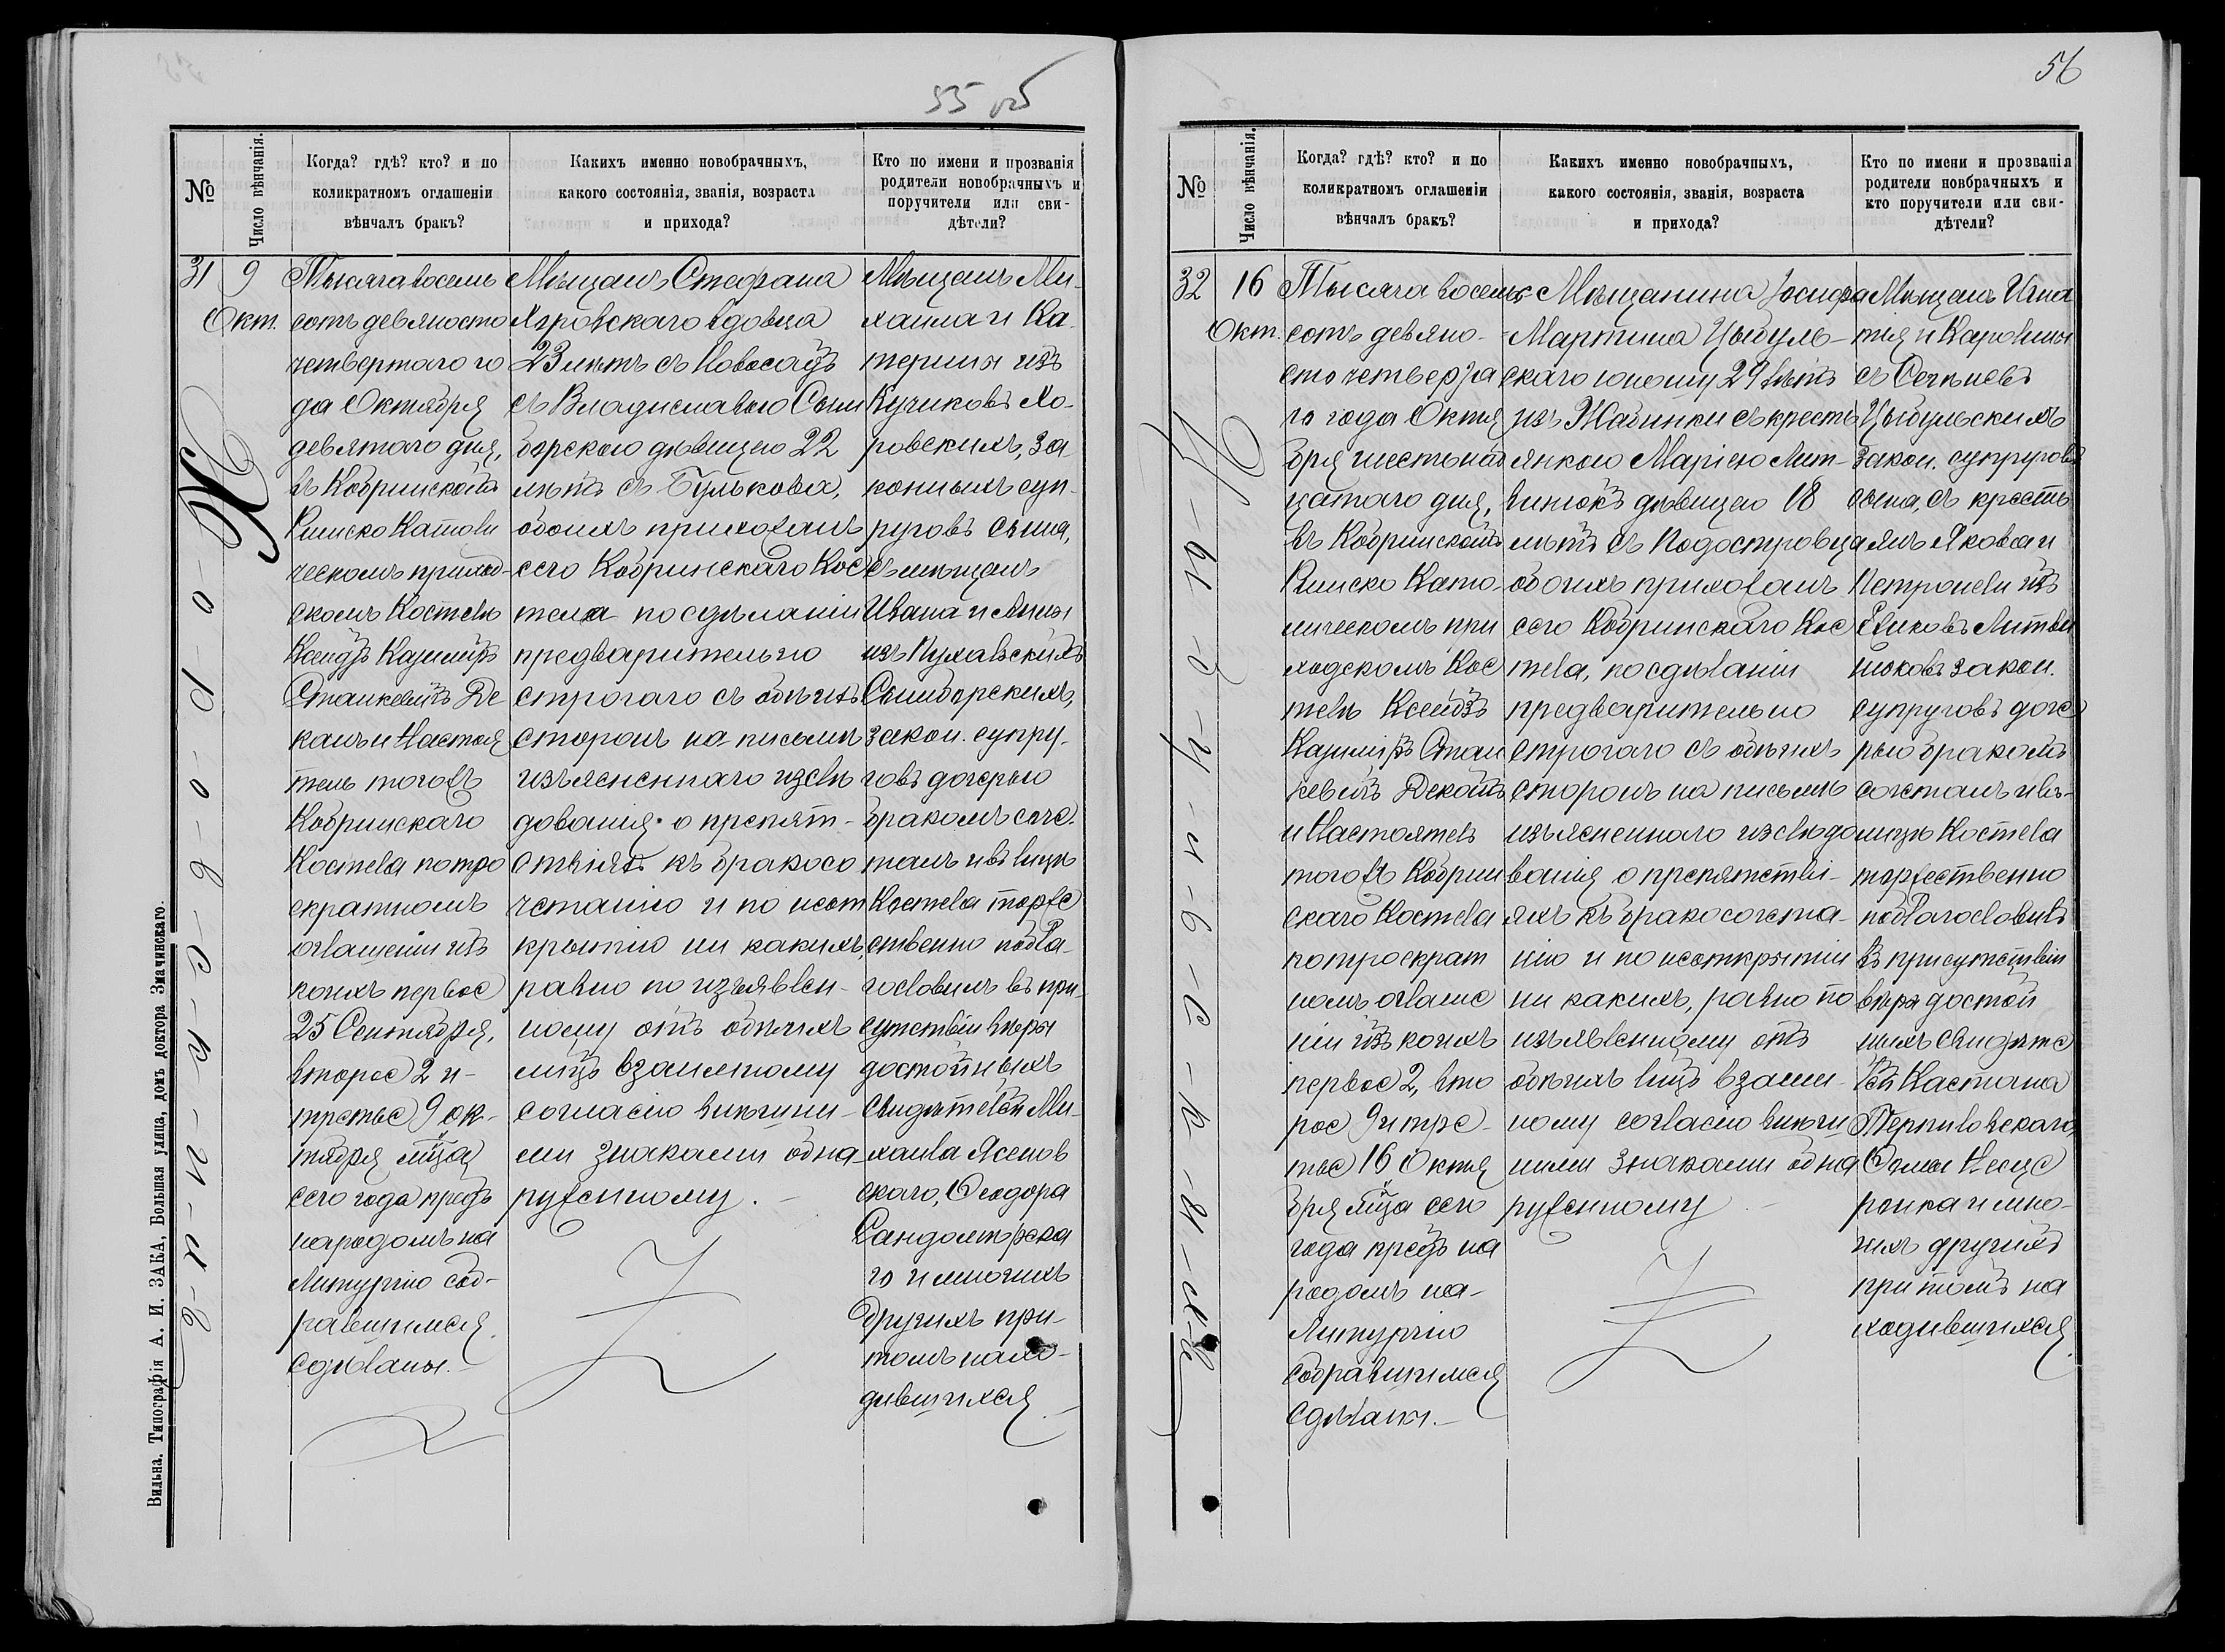 55 об
№
Число вѣнчанія.
Когда? гдѣ? кто? и по
коликратномъ оглашеніи
вѣнчалъ бракъ?
Какихъ именно новобрачныхъ,
какого состоянія, званія, возраста
и прихода?
Кто по имени и прозванія
родители новобрачныхъ и
поручители или сви-
дѣтели?
31
9
Окт.
Тысяча восемь
сотъ девяносто
четвертаго го
да Октября
девятаго дня,
въ Кобринскомъ
Римско Католи
ческомъ приход-
скомъ Костелѣ
Ксендзъ Казиміръ
Станкевичъ Де
канъ и Настоя
тель тогожъ
Кобринскаго
Костела по тро
екратномъ
оглашеніи изъ
коихъ первое
25 Сентября,
второе 2 и-
третье 9 ок-
тября м̃ца
сего года предъ
народомъ на
Литургію соб-
равшимся
сдѣланы.-
Мѣщанъ Стефана
вдовца
23 лѣтъ съ Новосадъ
съ Владиславою Сым
борскою дѣвицею 22
лѣтъ съ Булькова,
обоихъ прихожанъ
сего Кобринскаго Кос
тела по сдѣланіи
предварительно
строгаго съ обѣихъ
сторонъ на письмѣ
изъясненнаго изслѣ
дованія о препят-
ствіяхъ къ бракосо
четанію и по неот
крытію ни какихъ,
равно по изъявлен-
ному отъ обѣихъ
лицъ взаимному
согласію внѣшни-
ми знаками обна-
руженному.-
Мѣщанъ Ми-
хаила и Ка-
терины изъ
Кучиковъ
ровскихъ, за
конныхъ суп-
руговъ сына,
съ мѣщанъ
Ивана и Анны
изъ Пухальскихъ
Сымборскихъ,
закон. супру-
говъ дочерью
бракомъ соче-
талъ и въ лицѣ
Костела торже
ственно побла-
гословилъ въ при-
сутствіи вѣры
достойныхъ
свидѣтелей Ми-
хаила Ясенов
скаго, Ѳеодора
Сандомірска
го и многихъ
другихъ при-
томъ нахо-
дившихся.-
Вильна. Типографія А. И. ЗАКА, Большая улица, домъ доктора Змачинскаго.
56
№
Число вѣнчанія.
Когда? гдѣ? кто? и по
коликратномъ оглашеніи
вѣнчалъ бракъ?
Какихъ именно новобрачныхъ,
какого состоянія, званія, возраста
и прихода?
Кто по имени и прозванія
родители новбрачныхъ и
кто поручители или сви-
дѣтели?
32
16
Окт.
Тысяча восемь
сотъ девяно-
сто четверта
го года Октя
бря шестьнад
цатаго дня,
въ Кобринскомъ
Римско Като-
лическомъ при
ходскомъ Кос
телѣ Ксендзъ
Казиміръ Стан
кевичъ Деканъ
и Настоятель
тогожъ Кобрин
скаго Костела
по троекрат
номъ оглаше
ніи изъ коихъ
первое 2, вто
рое 9 и тре-
тье 16 Октя
бря м̃ца сего
года предъ на
родомъ на-
Литургію
собравшимся
сдѣланы.-
Мѣщанина Іосифа
Мартина Цыбуль-
скаго юношу 29 лѣтъ
изъ Жабинки съ кресть
янкою Маріею Лит-
винюкъ дѣвицею 18
лѣтъ съ Подостровца
обоихъ прихожанъ
сего Кобринскаго Кос
тела, по сдѣланіи
предварительно
строгаго съ обѣихъ
сторонъ на письмѣ
изъясненнаго изслѣдо
ванія о препятстві-
яхъ къ бракосочета-
нію и по неоткрытіи
ни какихъ, равно по
изъявленному отъ
обѣихъ лицъ взаим-
ному согласію внѣшни
ними знаками обна
руженному -
Мѣщанъ Игна
тія и Каролины
съ
Цыбульскихъ
закон. супруговъ
сына, съ кресть
янъ Якова и
Петронели изъ
Литви
нюковъ закон.
супруговъ доче
рью бракомъ
сочеталъ и въ-
лицѣ Костела
торжественно
поблагословилъ
въ присутствіи
вѣры достой
ныхъ свидѣте
лей Кастана
Терпиловскаго,
Ѳомы Неще
ронка и мно-
гихъ другихъ
при томъ на
ходившихся